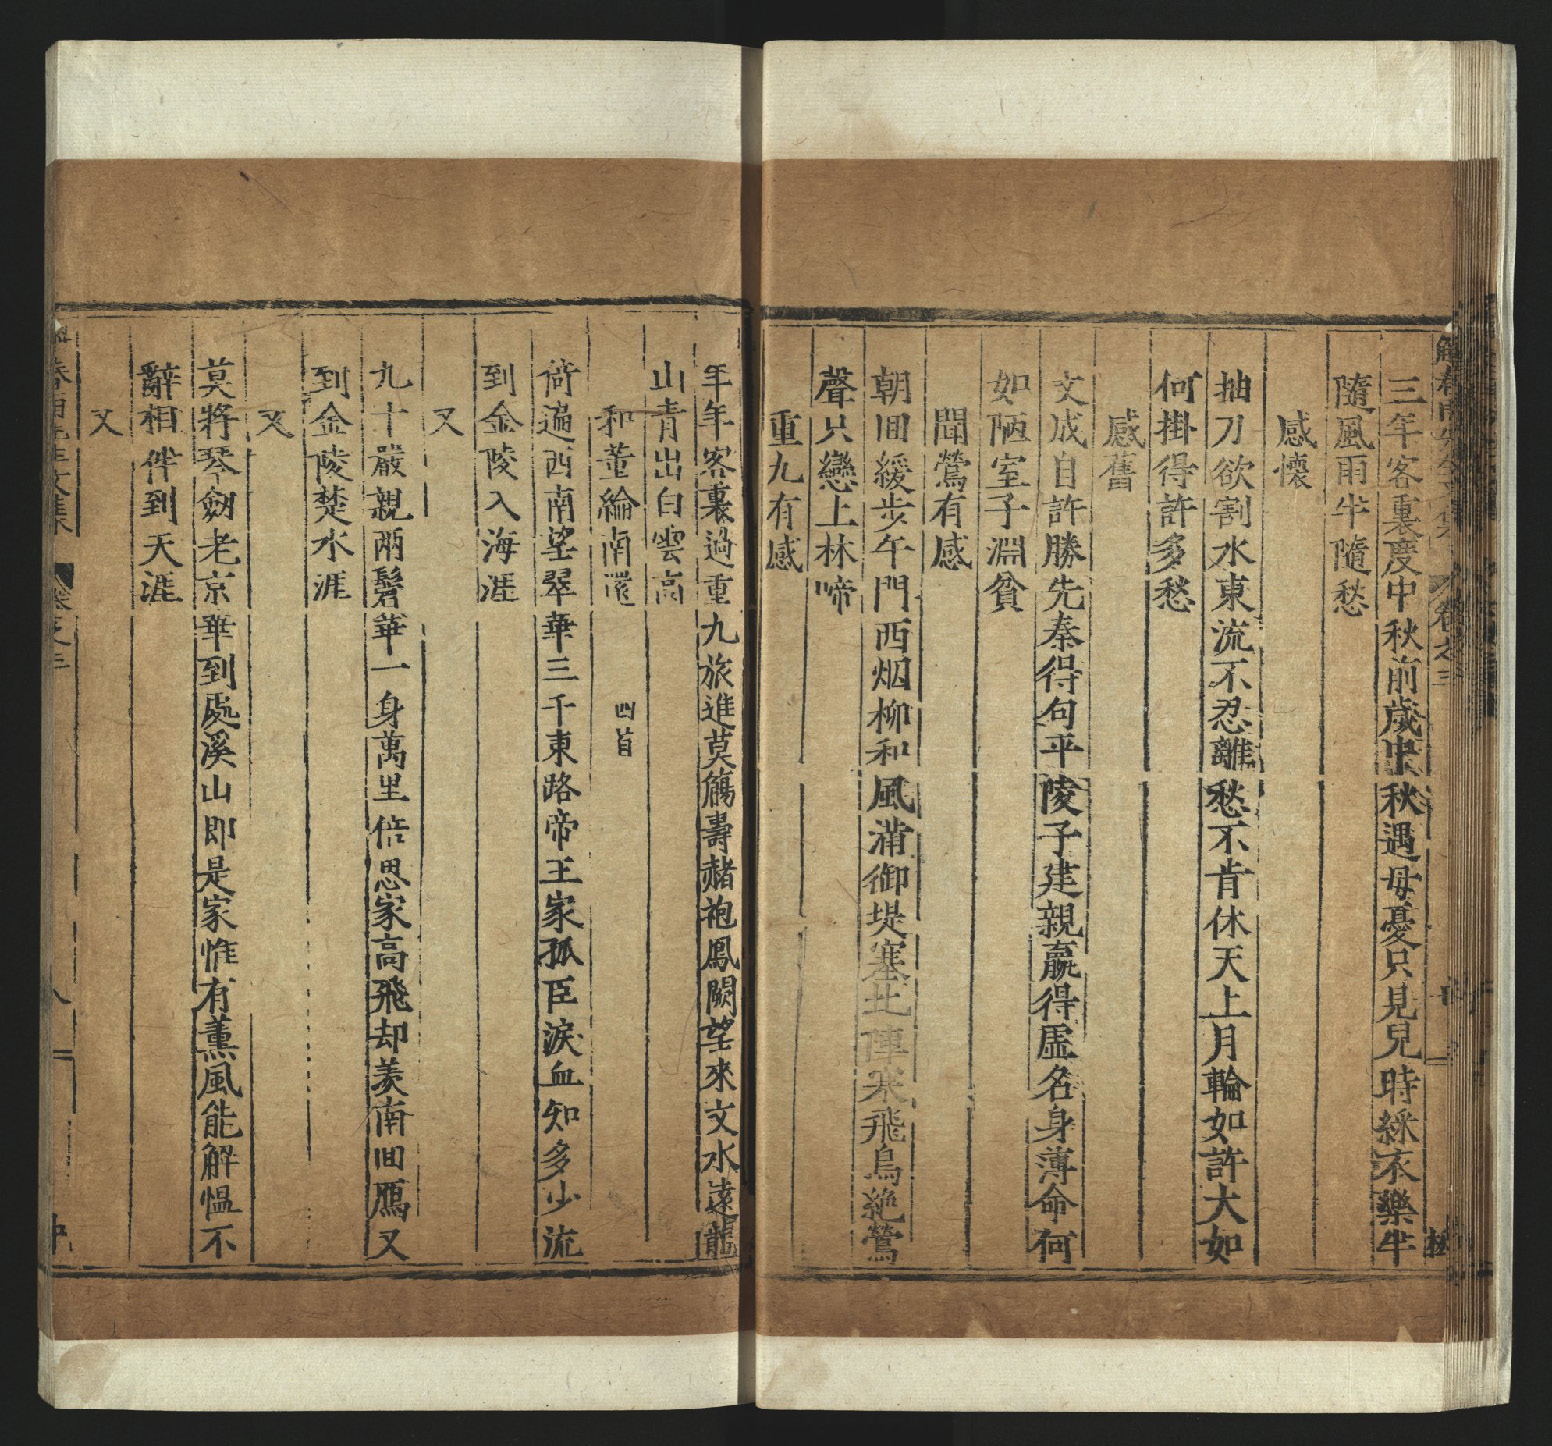 三年客裏度中秋前歲中秋遇母憂只見兒時綵衣樂半
隨風雨半隨愁
感懷
抽刀欲割水東流不忍離愁不肯休天上月輪如許大如
何掛得許多愁
感舊
文成自許勝先秦得句平陵子建親贏得虛名身薄命何
如陋室子淵貧
聞鶯有感
朝回緩步午門西烟柳和風滿御堤塞北陣寒飛鳥絶鶯
聲只戀上林啼
重九有感
年年客裏過重九旅進莫觴壽赭袍鳳闕望來文水遠龍
山青出白雲高
和董綸南還 四首
倚遍西南望翠華三千東路帝王家孤臣淚血知多少流
到金陵入海涯
又
九十嚴親兩鬢華一身萬里倍思家高飛却羡南回鴈又
到金陵楚水涯
又
莫將琴劒老京華到處溪山即是家惟有薰風能解慍不
辭相伴到天涯
又